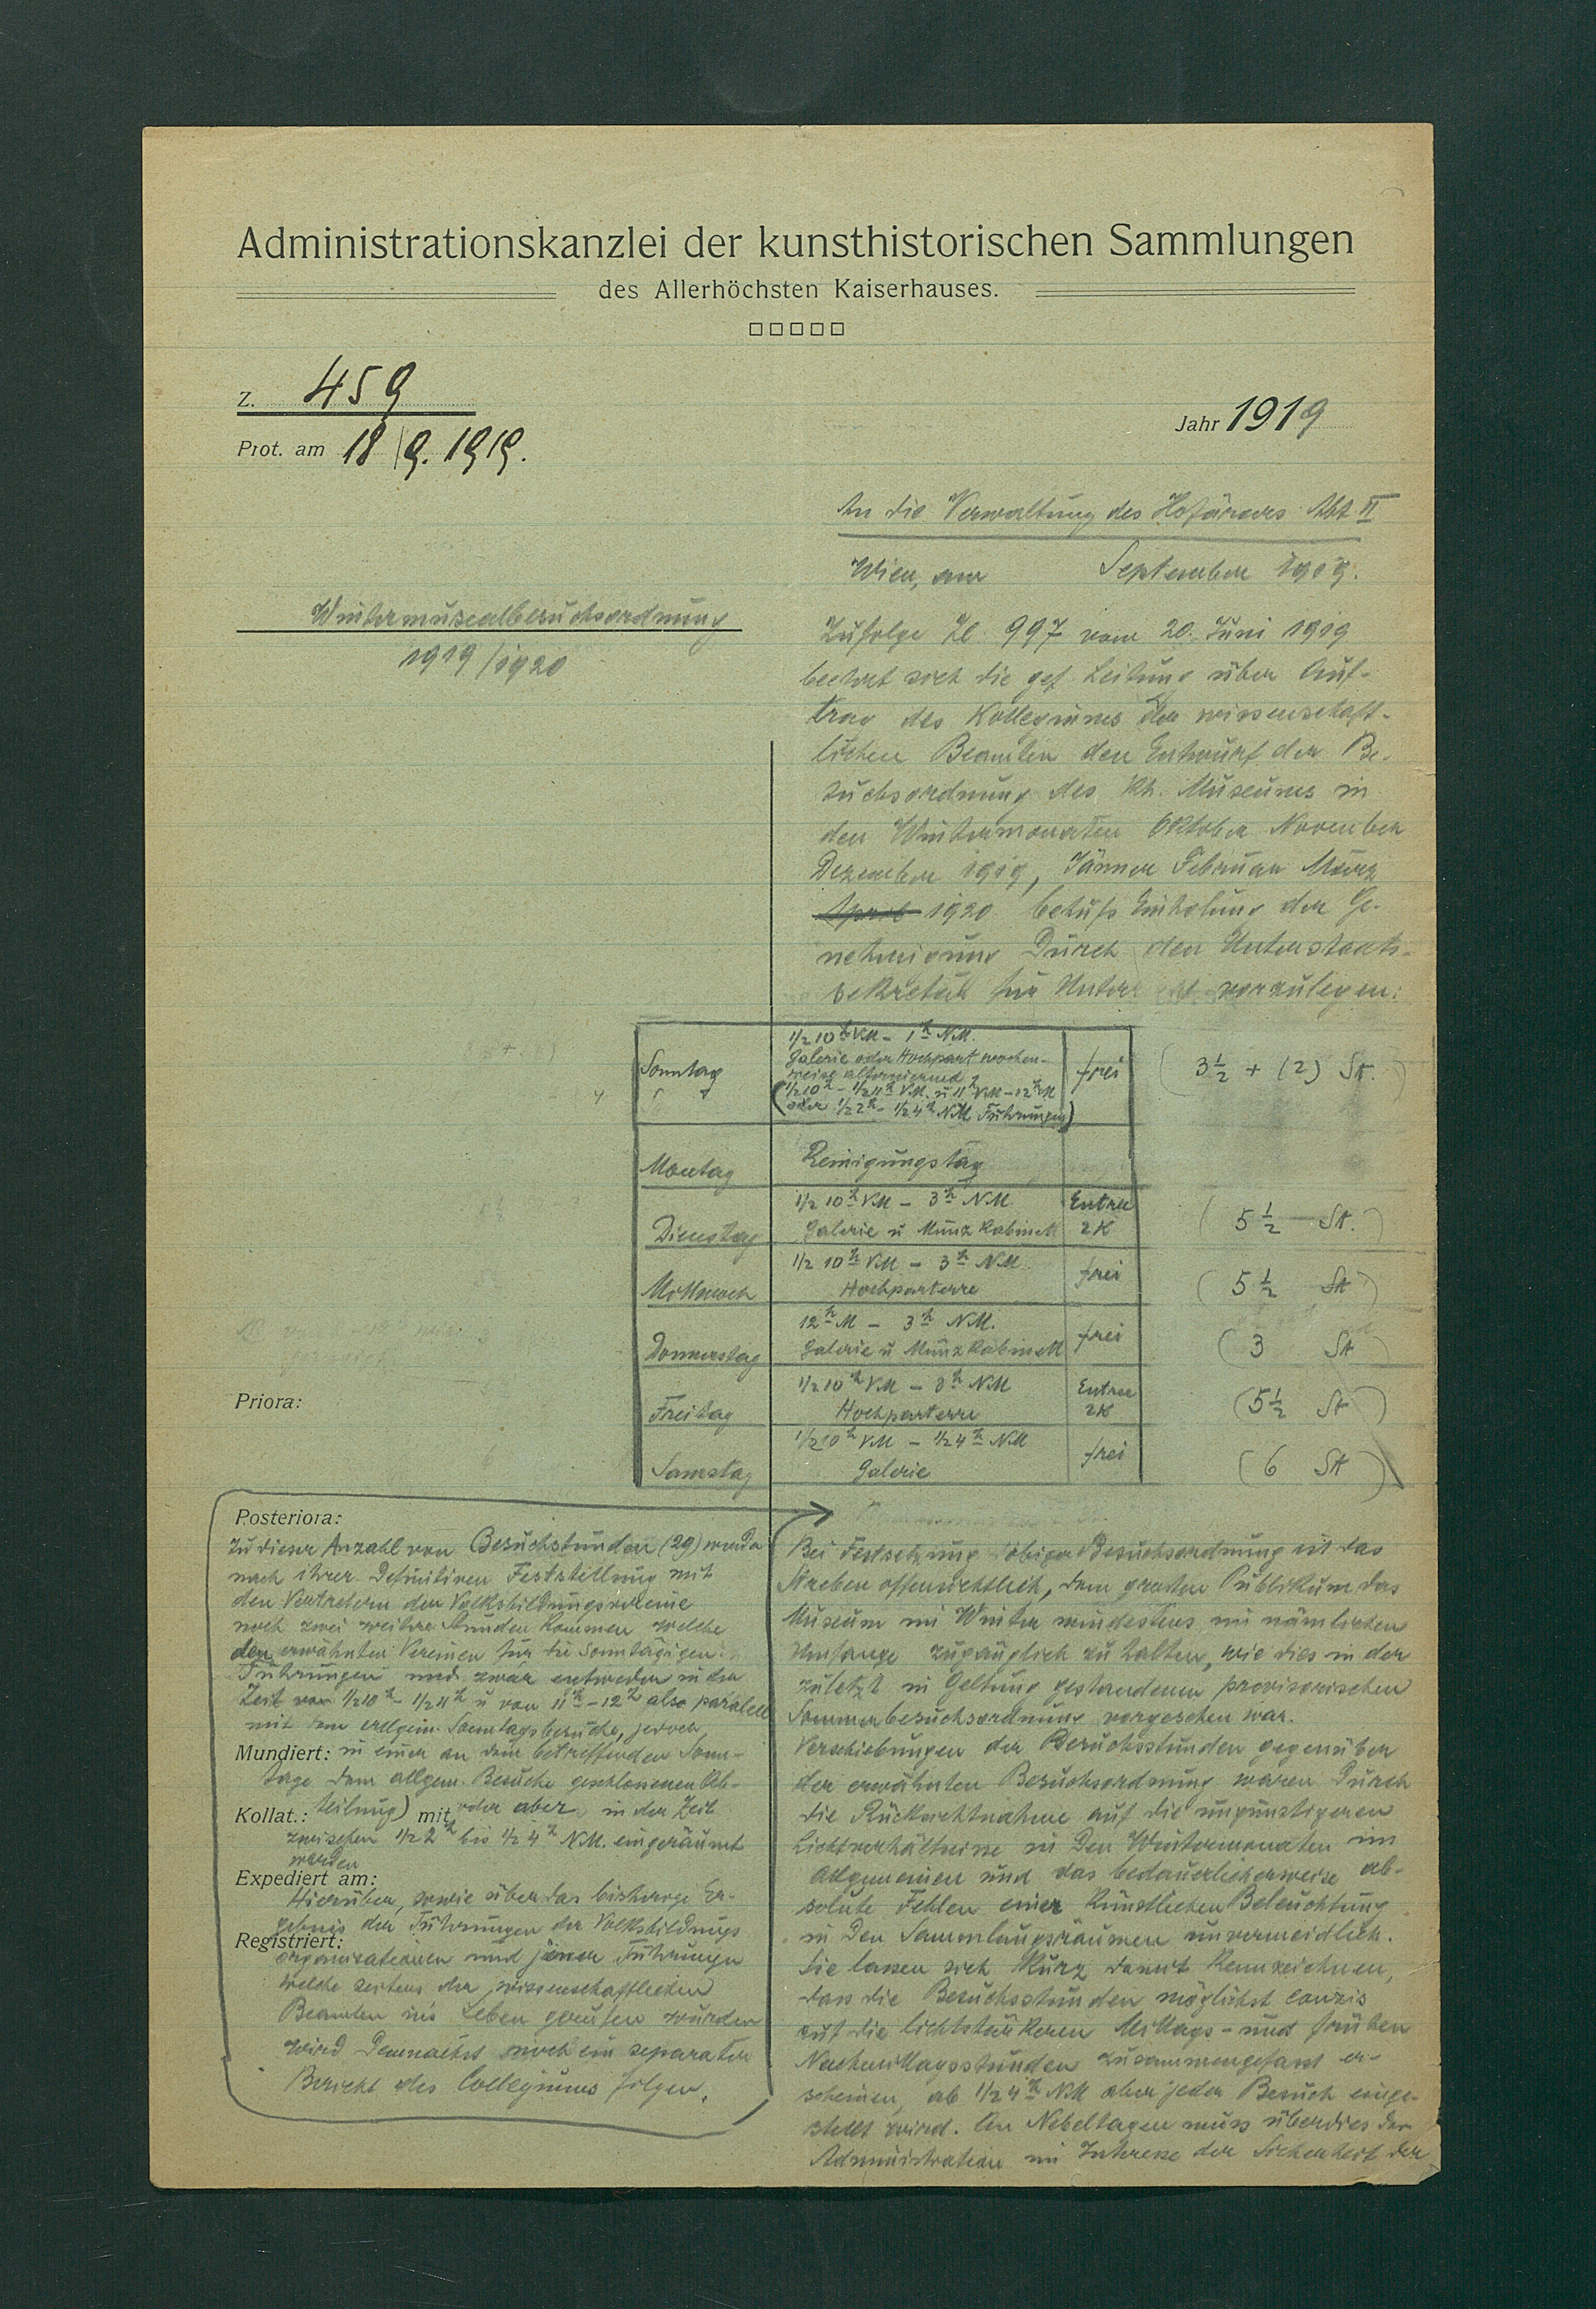 Administrationskanzlei der kunsthistorischen Sammlungen
des Allerhöchsten Kaiserhauses.
Z. 459
Jahr 1919
Prot. am 18/9. 1919.
Wintermusealbesuchsordnung
1919/1920
An die Verwaltung des Hofärars Abt II
Wien, am September 1919.
Zufolge Zl. 997 vom 20. Juni 1919
beehrt sich die gef. Leitung über Auf-
trag des Kollegiums der wissenschaft-
lichen Beamten den Entwurf der Be-
suchsordnung des kh. Museums in
den Wintermonaten Oktober November
Dezember 1919, Jänner Februar März
April 1920 behufs Einholung der Ge-
nehmigung durch den Unterstaats-
sekretär für Unter vorzulegen:
Sonntag
1/2 10h VM - 1h NM.
Galerie oder Hochpart wochen-
weise alternierend
(1/2 10h - 1/2 11h VM. u 11h VM - 12h M
oder 1/2 2h - 1/2 4h NM Führungen)
frei
(3 1/2 + (2) St.)
Montag
Reinigungstag
Dienstag
1/2 10h VM - 3h NM
Galerie u Münzkabinett
Entree
2K
(5 1/2 St.)
Mittwoch
1/2 10h VM - 3h NM.
Hochparterre
frei
(5 1/2 St)
Donnerstag
12h M - 3h NM.
Galerie u Münzkabinett
frei
(3 St)
Freitag
1/2 10h VM - 3h NM
Hochparterre
Entree
2K
(5 1/2 St)
Samstag
1/2 10h VM - 1/2 4h NM
Galerie
frei
(6 St)
Priora:
Posteriora:
Zu dieser Anzahl von Besuchstunden (29) werden
nach ihrer definitiven Feststellung mit
den Vertretern der Volksbildungsvereine
noch zwei weitere Stunden kommen welche
den erwähnten Vereinen für die Sonntägigen
Führungen und zwar entweder in der
Zeit von 1/2 10h - 1/2 11h u von 11h - 12h also paralell
mit dem allgem. Sonntagsbesuche, jedoch
Mundiert: in einer an dem betreffenden Sonn-
tage dem allgem. Besuche geschlossenen Ab-
Kollat.: teilung) mit oder aber in der Zeit
zwischen 1/2 2h bis 1/2 4h NM. eingeräumt
werden
Expediert am:
Hierüber, sowie über das bisherige Er-
gebnis der Führungen der Volksbildungs
Registriert:
organisationen und jener Führungen
welche seitens der wissenschaftlichen
Beamten ins Leben gerufen wurden
wird demnächst noch ein separater
Bericht des Collegiums folgen.
Bei Festsetzung obiger Besuchsordnung ist das
Streben offensichtlich, dem grossen Publikum das
Museum im Winter mindestens im nämlichen
Umfange zugänglich zu halten, wie dies in der
zuletzt in Geltung gestandenen provisorischen
Sommerbesuchsordnung vorgesehen war.
Verschiebungen der Besuchsstunden gegenüber
der erwähnten Besuchsordnung waren durch
die Rücksichtnahme auf die ungünstigeren
Lichtverhältnisse in den Wintermonaten im
Allgemeinen und das bedauerlicherweise ab-
solute Fehlen einer künstlichen Beleuchtung
in den Sammlungsräumen unvermeidlich.
Sie lassen sich kurz damit kennzeichnen,
dass die Besuchsstunden möglichst conzis
auf die lichtstärkeren Mittags- und frühen
Nachmittagsstunden zusammengefasst er-
scheinen, ab 1/2 4h NM aber jeder Besuch einge-
stellt wird. An Nebeltagen muss überdies der
Administration im Interesse der Sicherheit der